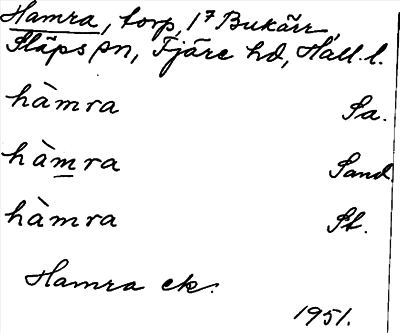 Hamra, torp, 1⁷ Bukärr,
Släps sn, Fjäre hd, Hall. l.
hàmra Sa.
hàmra Sand
hàmra St.
Hamra ek.
1951.